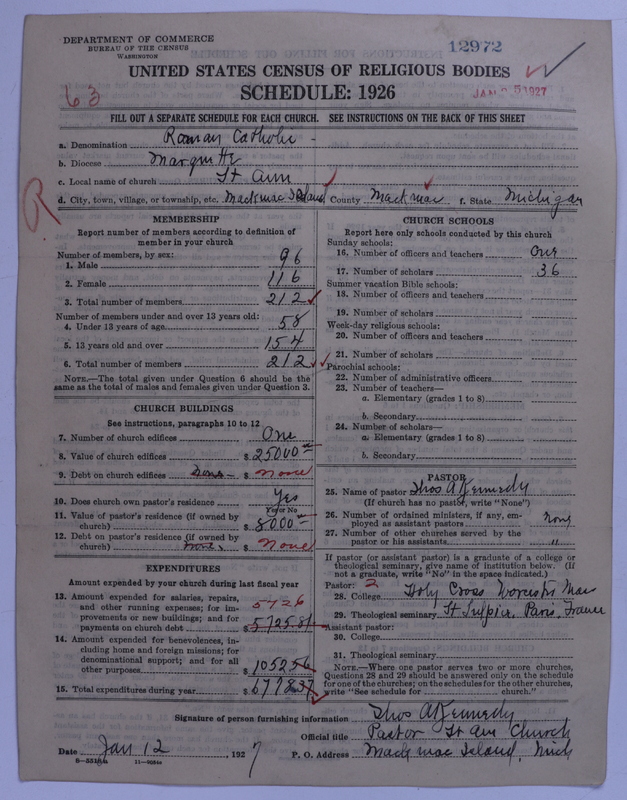 DEPARTMENT OF COMMERCE
BUREAU OF THE CENSUS
WASHINGTON
12972
UNITED STATES CENSUS OF RELIGIOUS BODIES
SCHEDULE: 1926
63
JAN 5 1927
FILL OUT A SEPARATE SCHEDULE FOR EACH CHURCH. SEE INSTRUCTIONS ON THE BACK OF THIS SHEET
a. Denomination Roman Catholic
b. Diocese Marquette
c. Local name of church St Ann
d. City, town, village, or township, etc. Mackinac Island County Mackinac f. State Michigan
R
MEMBERSHIP
Report number of members according to definition of
member in your church
Number of members, by sex:
1. Male 96
2. Female 116
3. Total number of members 212
Number of members under and over 13 years old:
4. Under 13 years of age 58
5. 13 years old and over 154
6. Total number of members 212
NOTE.—The total given under Question 6 should be
same as the total of males and females given under Question 3.
CHURCH BUILDINGS
See instructions, paragraphs 10 to 12
7. Number of church edifices One
8. Value of church edifices $ 25000
9. Debt on church edifices None $ None
10. Does church own pastor's residence Yes
Yes or No
11. Value of pastor's residence (if owned by
church) $ 8000
12. Debt on pastor's residence (if owned by
church) None $ None
EXPENDITURES
Amount expended by your church during last fiscal year
13. Amount expended for salaries, repairs,
and other running expenses; for im-
provements or new buildings; and for
payments on church debt 5726
$ 5725.81
14. Amount expended for benevolences, in-
cluding home and foreign missions; for
denominational support; and for all
other purposes $ 1052.56
15. Total expenditures during year $ 6778.37
CHURCH SCHOOLS
Report here only schools conducted by this church
Sunday schools:
16. Number of officers and teachers One
17. Number of scholars 36
Summer vacation Bible schools:
18. Number of officers and teachers
19. Number of scholars
Week-day religious schools:
20. Number of officers and teachers
21. Number of scholars
Parochial schools:
22. Number of administrative officers
23. Number of teachers—
a. Elementary (grades 1 to 8)
b. Secondary
24. Number of scholars—
a. Elementary (grades 1 to 8)
b. Secondary
PASTOR
25. Name of pastor Thos A Kennedy
(If church has no pastor, write "None")
26. Number of ordained ministers, if any, em-
ployed as assistant pastors None
27. Number of other churches served by the
pastor or his assistants "
If pastor (or assistant pastor) is a graduate of a college or
theological seminary, give name of institution below. (If
not a graduate, write "No" in the space indicated.)
Pastor: 2
28. College Holy Cross Worcester Mass
29. Theological seminary St Sulpice, Paris, France
Assistant pastor:
30. College
31. Theological seminary
NOTE.—Where one pastor serves two or more churches,
Questions 28 and 29 should be answered only on the schedule
for one of the churches; on the schedules for the other churches,
write "See schedule for church."
Signature of person furnishing information Thos A Kennedy
Official title Pastor St Ann Church
Date Jan 12, 1927 P. O. Address Mackinac Island, Mich